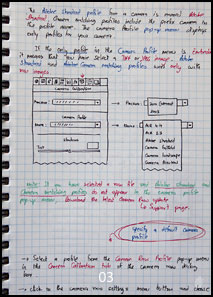 The Adobe Standard profile from a camera is present. Adobe
Standard Camera matching profiles include the prefix camera in
the profile name. The camera Profile popup-menu displays
only profiles for your camera.
If the only profile in the Camera Profile menu is Embedded
it means that you have select a TIFF or JPEG image. Adobe
Standard and Camera matching profiles work only with
raw images
Camera Calibration
Process:
Camera Profile
Name:
Shadows
Tint
Process:
2010 (Current)
2003
Name:
ACR 4.4
ACR 2.4
Adobe Standard
Camera Faithful
Camera Landscape
Camera Neutral
Note: If you have selected a raw file and Adobe Standard and
Camera matching profiles do not appear in the camera profile
popup menu. Download the latest Camera Raw update
Support page.
Specify a default camera
profile
→ Select a profile from the Camera Raw Profile popup-menu
in the Camera Calibration tab of the camera raw dialog
box
03
→ click to the camera raw settings menu button and choose